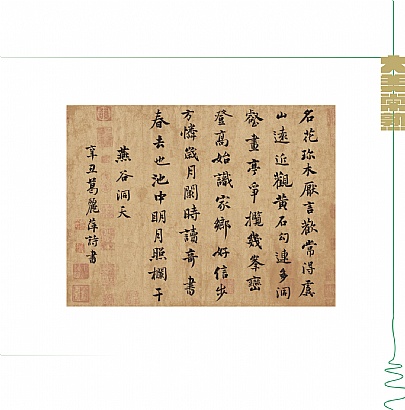 大美常熟
名花珎木厭言歡常得虞
山遠近觀黄石勾連多洞
壑畫亭爭攬幾峯巒
登高始識家鄉好信步
方憐歲月闌時讀奇書
春去也池中明月照欄干
燕谷洞天
辛丑葛麗萍詩書